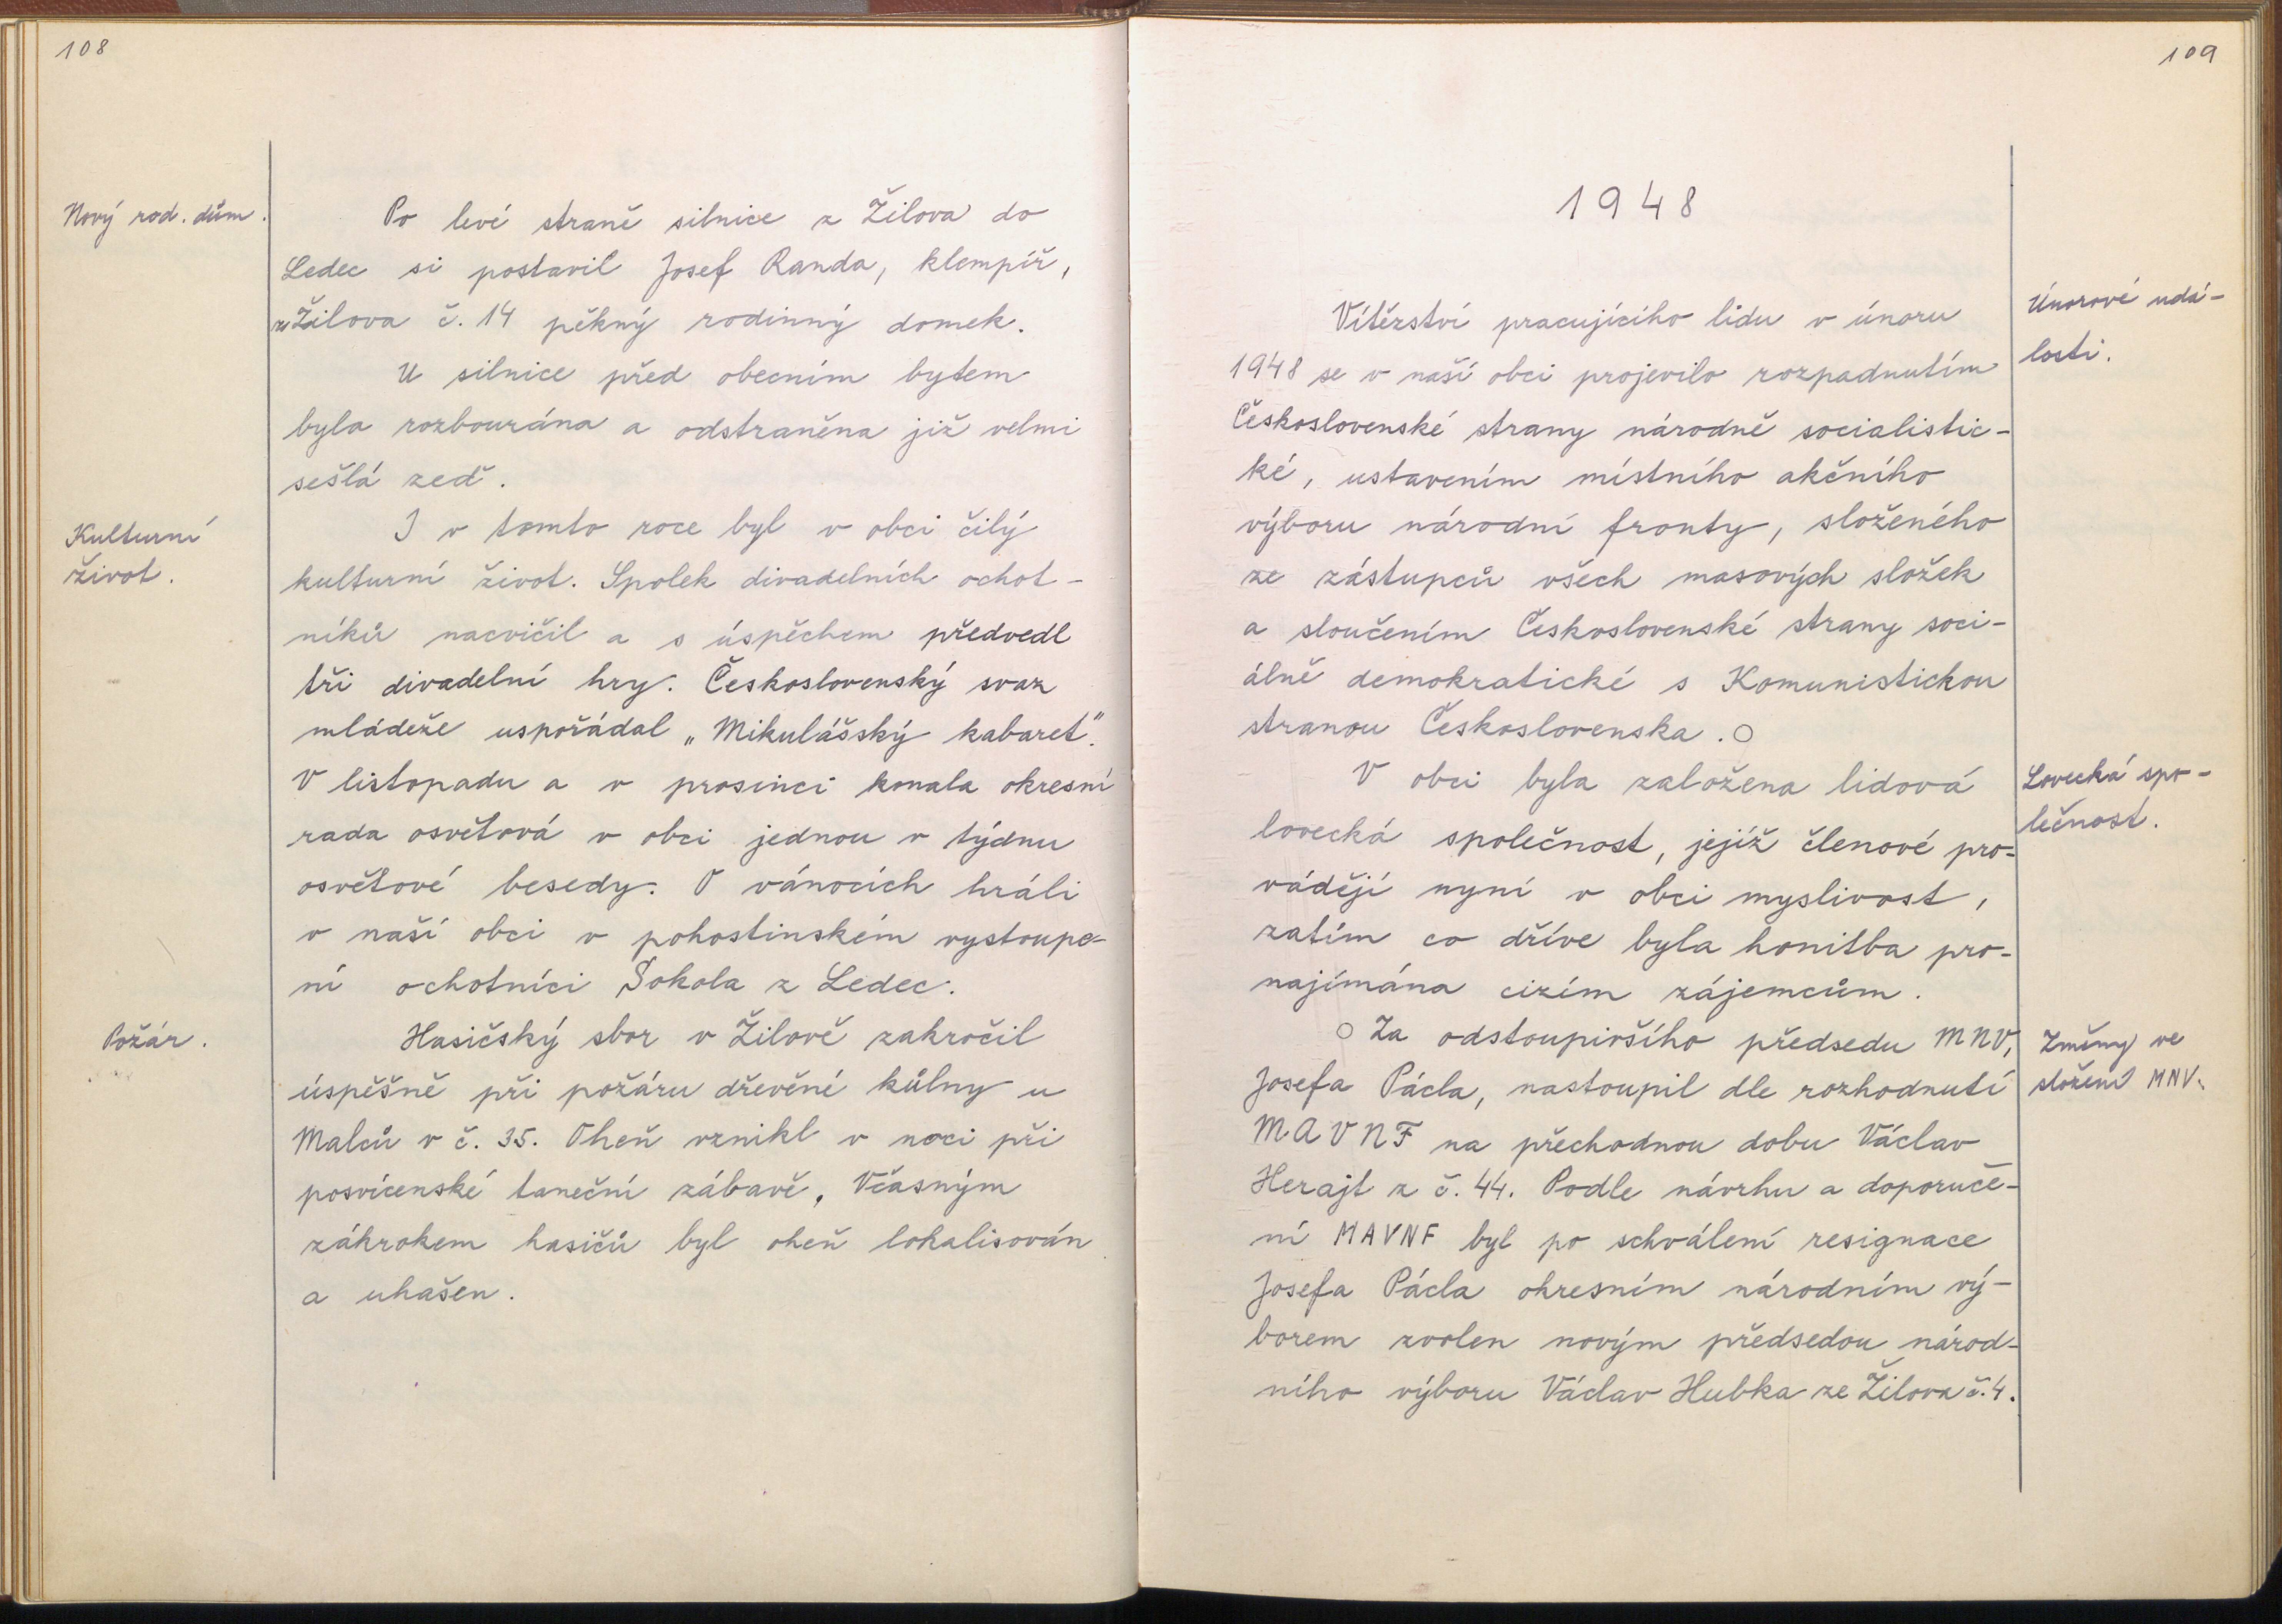 108
Nový rod. dům.
Po levé straně silnice z Žilova do
Ledec si postavil Josef Randa, klempíř,
ze Žilova č. 14 pěkný rodinný domek.
U silnice před obecním bytem
byla rozbourána a odstraněna již velmi
sešlá zeď.
Kulturní
život.
I v tomto roce byl v obci čilý
kulturní život. Spolek divadelních ochot-
níků nacvičil a s úspěchem předvedl
tři divadelní hry. Československý svaz
mládeže uspořádal „Mikulášský kabaret".
V listopadu a v prosinci konala okresní
rada osvětová v obci jednou v týdnu
osvětové besedy. O vánocích hráli
v naší obci v pohostinském vystoupe-
ní ochotníci Sokola z Ledec.
Požár.
Hasičský sbor v Žilově zakročil
úspěšně při požáru dřevěné kůlny u
Malců v č. 35. Oheň vznikl v noci při
posvícenské taneční zábavě. Včasným
zákrokem hasičů byl oheň lokalisován
a uhašen.
109
1948
Únorové udá-
losti.
Vítězství pracujícího lidu v únoru
1948 se v naší obci projevilo rozpadnutím
Československé strany národně socialistic-
ké, ustavením místního akčního
výboru národní fronty, složeného
ze zástupců všech masových složek
a sloučením Československé strany soci-
álně demokratické s Komunistickou
stranou Československa. ○
Lovecká spo-
lečnost.
V obci byla založena lidová
lovecká společnost, jejíž členové pro-
vádějí nyní v obci myslivost,
zatím co dříve byla honitba pro-
najímána cizím zájemcům.
Změny ve
složení MNV.
○ Za odstoupivšího předsedu MNV,
Josefa Pácla, nastoupil dle rozhodnutí
MAVNF na přechodnou dobu Václav
Herajt z č. 44. Podle návrhu a doporuče-
ní MAVNF byl po schválení resignace
Josefa Pácla okresním národním vý-
borem zvolen novým předsedou národ-
ního výboru Václav Hubka ze Žilova č. 4.